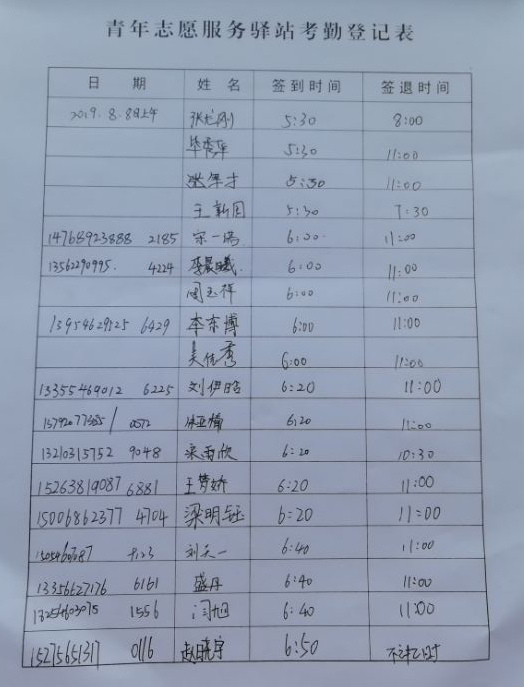 青年志愿服务驿站考勤登记表
日 期 姓 名 签到时间 签退时间
2019.8.8日上午 5:30 8:00
5:30 11:00
5:30 11:00
王新国 5:30 7:30
14768923888 2185 宋一鸿 6:00 11:00
13562290995. 4224 李晨曦 6:00 11:00
周玉祥 6:00 11:00
13954629525 6429 李东博 6:00 11:00
吴佳秀 6:00 11:00
13355469012 6225 刘伊晗 6:20 11:00
0572 6:20 11:00
13210315752 9048 宋雨欣 6:20 10:30
15263819087 6881 王梦娇 6:20 11:00
15006862377 4704 梁明钰 6:20 11:00
刘天一 6:40 11:00
13356627176 6161 盛丹 6:40 11:00
13254603075 1556 闫旭 6:40 11:00
15275651317 0116 赵晓宇 6:50